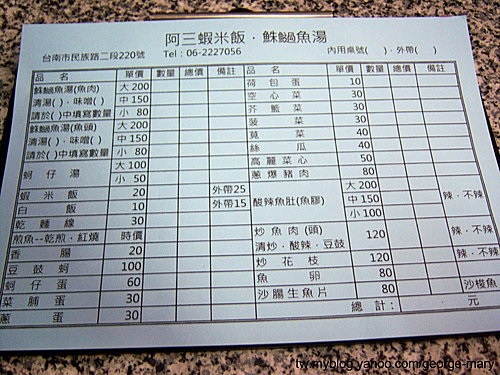 阿三蝦米飯．鮢鮘魚湯
台南市民族路二段220號 Tel：06-2227056 內用桌號( )．外帶( )
品名 單價 數量 總價 備註 品名 單價 數量 總價 備註
魚湯(魚肉) 大 200 荷包蛋 10
清湯( )．味噌( ) 中 150 空心菜 30
請於( )中填寫數量 小 80 芥藍菜 30
魚湯(魚頭) 大 200 菠菜 30
清湯( )．味噌( ) 中 150 莧菜 40
請於( )中填寫數量 小 80 絲瓜 40
蚵仔湯 大 100 高麗菜心 50
小 50 蔥爆豬肉 80
蝦米飯 20 外帶25 酸辣魚肚(魚膠) 大 200 辣．不辣
白飯 10 外帶15 中 150
乾麵線 30 小 100
煎魚--乾煎．紅燒 時價 炒魚肉(頭) 120 辣．不辣
香腸 20 清炒．酸辣．豆鼓
豆鼓蚵 100 炒花枝 120 辣．不辣
蚵仔蛋 60 魚卵 80
菜脯蛋 30 沙腸生魚片 80 沙梭魚
蔥蛋 30 總計： 元
tw.myblog.yahoo.com/george-mary